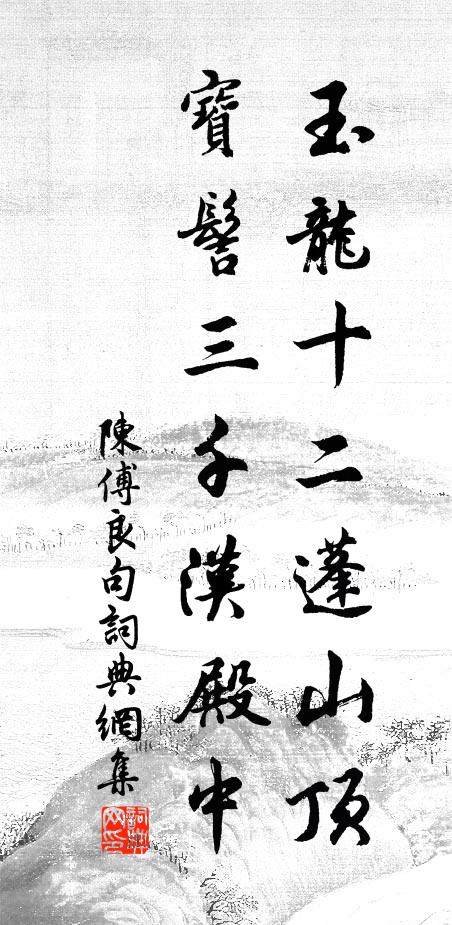 玉龍十二蓬山頂
寶髻三千漢殿中
陳傅良句詞典網集